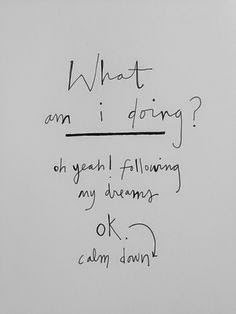 What
am i doing?
oh yeah! following
my dreams
OK.
calm down